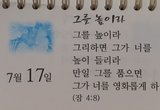 그를 높이라
그를 높이라
그리하면 그가 너를
높이 들리라
만일 그를 품으면
그가 너를 영화롭게 하
(잠 4:8)
7월 17일